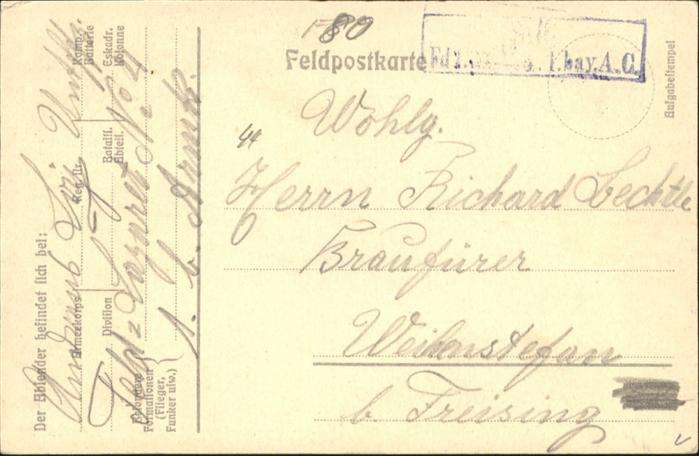 80
Feldpostkarte
bay. A. C.
Aufgabestempel
Wohlg.
Herrn Richard Lechtle
Braufürer
Weihnstefan
b. Freising
Der Absender befindet sich bei:
Armeekorps
Division
Formationen
(Flieger,
Funker usw.)
Reg. Nr.
Bataill.
Abteil.
Komp.
Batterie
Eskadr.
Kolonne
Andreas
Feld-Lazaret No 4
1. b. Armek.